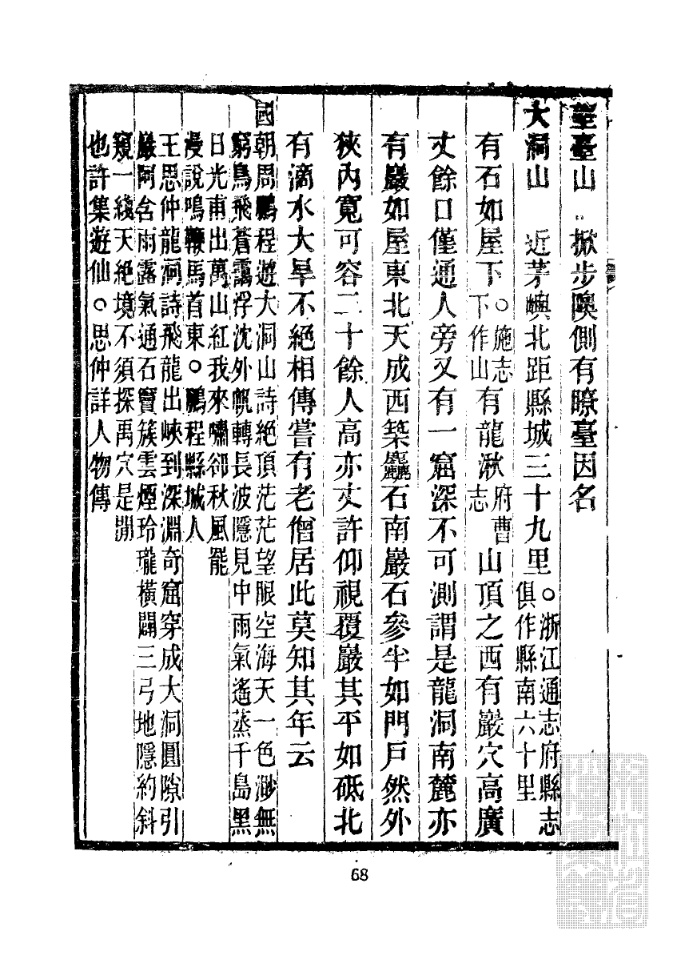 望臺山 掀步隩側有瞭臺因名
大洞山 近茅嶼北距縣城三十九里。浙江通志府縣志
俱作縣南六十里
有石如屋下。施志
下作山有龍湫府曹
志山頂之西有巖穴高廣
丈餘口僅通人旁又有一窟深不可測謂是龍洞南麓亦
有巖如屋東北天成西築麤石南巖石參半如門戶然外
狹內寬可容二十餘人高亦丈許仰視覆巖其平如砥北
有滴水大旱不絕相傳嘗有老僧居此莫知其年云
國朝周鵬程遊大洞山詩絕頂茫茫望眼空海天一色渺無
窮鳥飛蒼靄浮沈外帆轉長波隱見中雨氣遙蒸千島黑
日光甫出萬山紅我來嘯卻秋風罷
漫說鳴鞭馬首東。鵬程縣城人
王思仲龍洞詩飛龍出峽到深淵奇窟穿成大洞圓隙引
巖阿含雨露氣通石竇簇雲煙玲瓏橫闢三弓地隱約斜
窺一綫天絕境不須探禹穴是閒
也許集遊仙。思仲詳人物傳
68